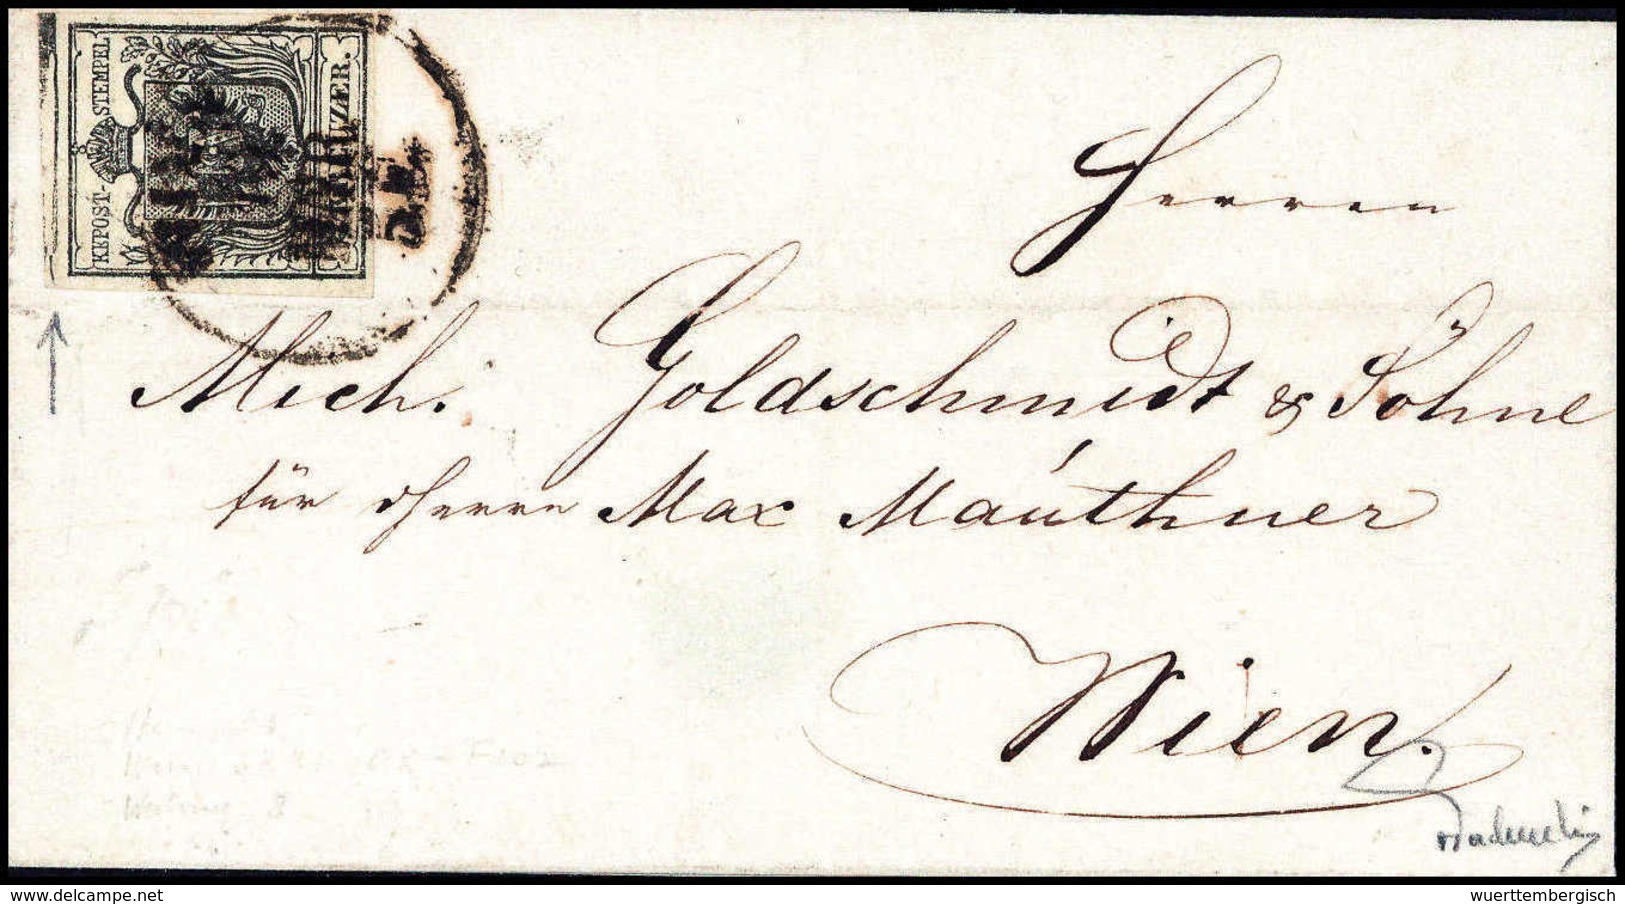 KKPOST-STEMPEL
KREUZER.
Herren
Mich. Goldschmidt & Söhne
für Herrn Max Mauthner
Wien.
www.delcampe.net
wuerttembergisch